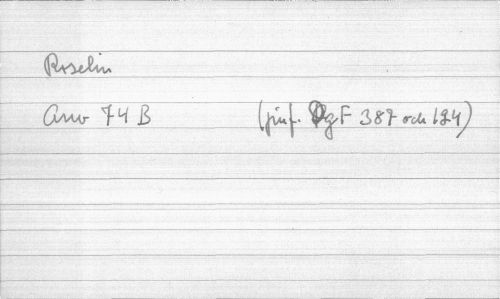 Roselin
Anv 74 B (jmf. DgF 387 och 124)